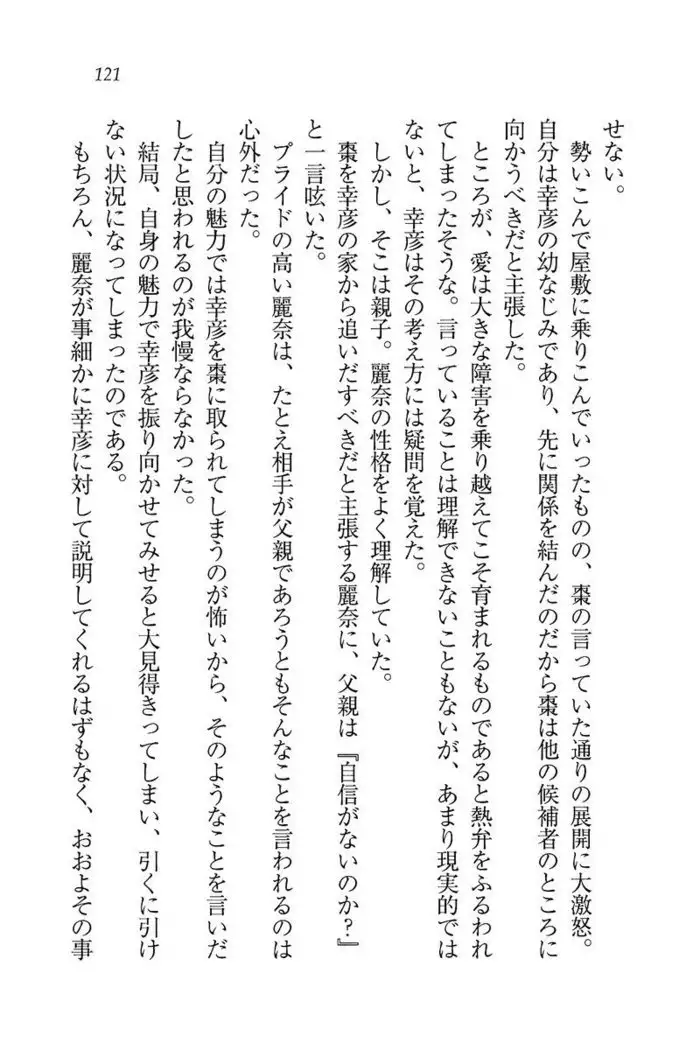 121
せない。
勢いこんで屋敷に乗りこんでいったものの、棗の言っていた通りの展開に大激怒。
自分は幸彦の幼なじみであり、先に関係を結んだのだから棗は他の候補者のところに
向かうべきだと主張した。
ところが、愛は大きな障害を乗り越えてこそ育まれるものであると熱弁をふるわれ
てしまったそうな。言っていることは理解できないこともないが、あまり現実的では
ないと、幸彦はその考え方には疑問を覚えた。
しかし、そこは親子。麗奈の性格をよく理解していた。
棗を幸彦の家から追いだすべきだと主張する麗奈に、父親は『自信がないのか？』
と一言呟いた。
プライドの高い麗奈は、たとえ相手が父親であろうともそんなことを言われるのは
心外だった。
自分の魅力では幸彦を棗に取られてしまうのが怖いから、そのようなことを言いだ
したと思われるのが我慢ならなかった。
結局、自身の魅力で幸彦を振り向かせてみせると大見得きってしまい、引くに引け
ない状況になってしまったのである。
もちろん、麗奈が事細かに幸彦に対して説明してくれるはずもなく、おおよその事